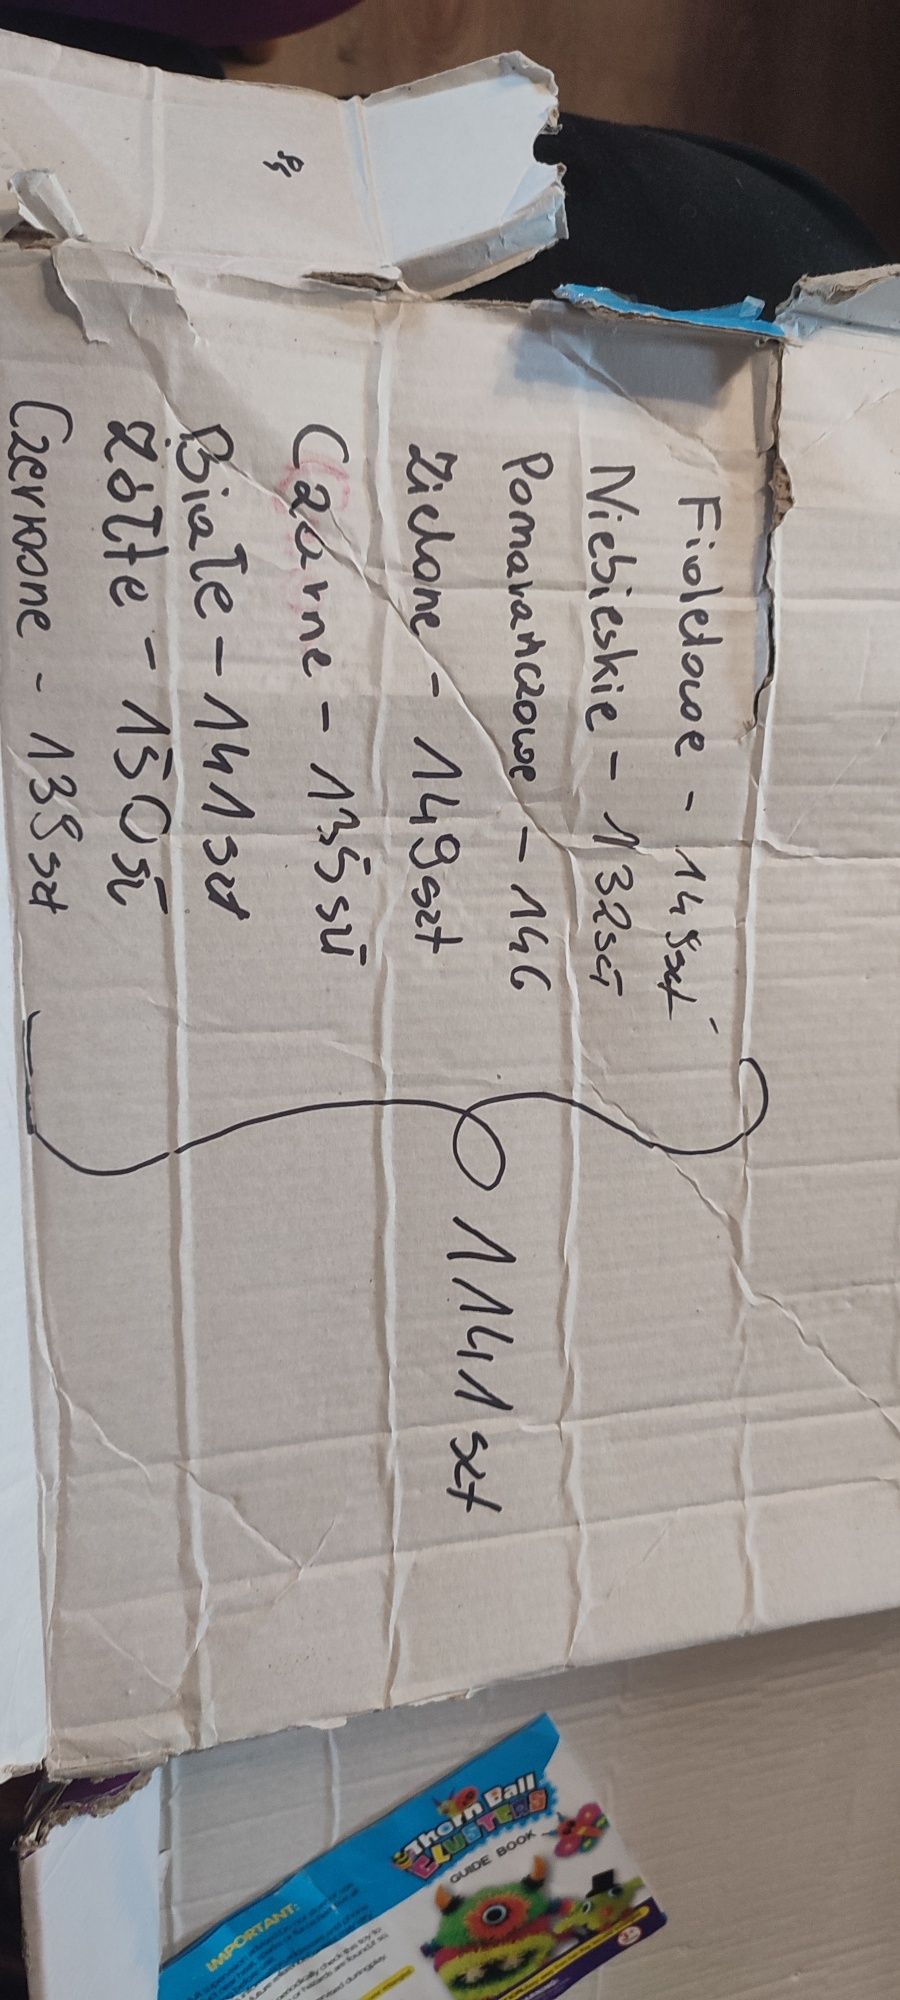 Fioletowe - 149szt
Niebieskie - 132szt
Pomarańczowe - 146
Zielone - 149szt
Czarne - 135szt
Białe - 141szt
Żółte - 150szt
Czerwone - 139szt
1141szt
Thorn Ball
CLUSTERS
GUIDE BOOK
IMPORTANT: